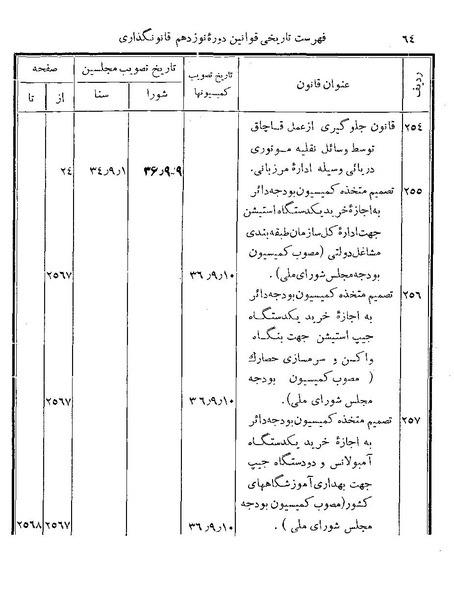 ٦٤ فهرست تاریخی قوانین دورهٔ نوزدهم قانونگذاری
ردیف عنوان قانون تاریخ تصویب کمیسیونها تاریخ تصویب مجلسین صفحه
شورا سنا از تا
٢٥٤ قانون جلوگیری از عمل قاچاق
توسط وسائل نقلیه موتوری
دریائی وسیله ادارهٔ مرزبانی. ٣٦٫٩٫٩ ٣٤٫٩٫١ ٢٤
٢٥٥ تصمیم متخذه کمیسیون بودجه دائر
به اجازهٔ خرید یکدستگاه استیشن
جهت ادارهٔ کل سازمان طبقه بندی
مشاغل دولتی (مصوب کمیسیون
بودجه مجلس شورای ملی). ٣٦٫٩٫١٠ ٢٥٦٧
٢٥٦ تصمیم متخذه کمیسیون بودجه دائر
به اجازهٔ خرید یکدستگاه
جیپ استیشن جهت بنگاه
واکسن و سرمسازی حصارک
( مصوب کمیسیون بودجه
مجلس شورای ملی). ٣٦٫٩٫١٠ ٢٥٦٧
٢٥٧ تصمیم متخذه کمیسیون بودجه دائر
به اجازهٔ خرید یکدستگاه
آمبولانس و دودستگاه جیپ
جهت بهداری آموزشگاههای
کشور(مصوب کمیسیون بودجه
مجلس شورای ملی ). ٣٦٫٩٫١٠ ٢٥٦٧ ٢٥٦٨